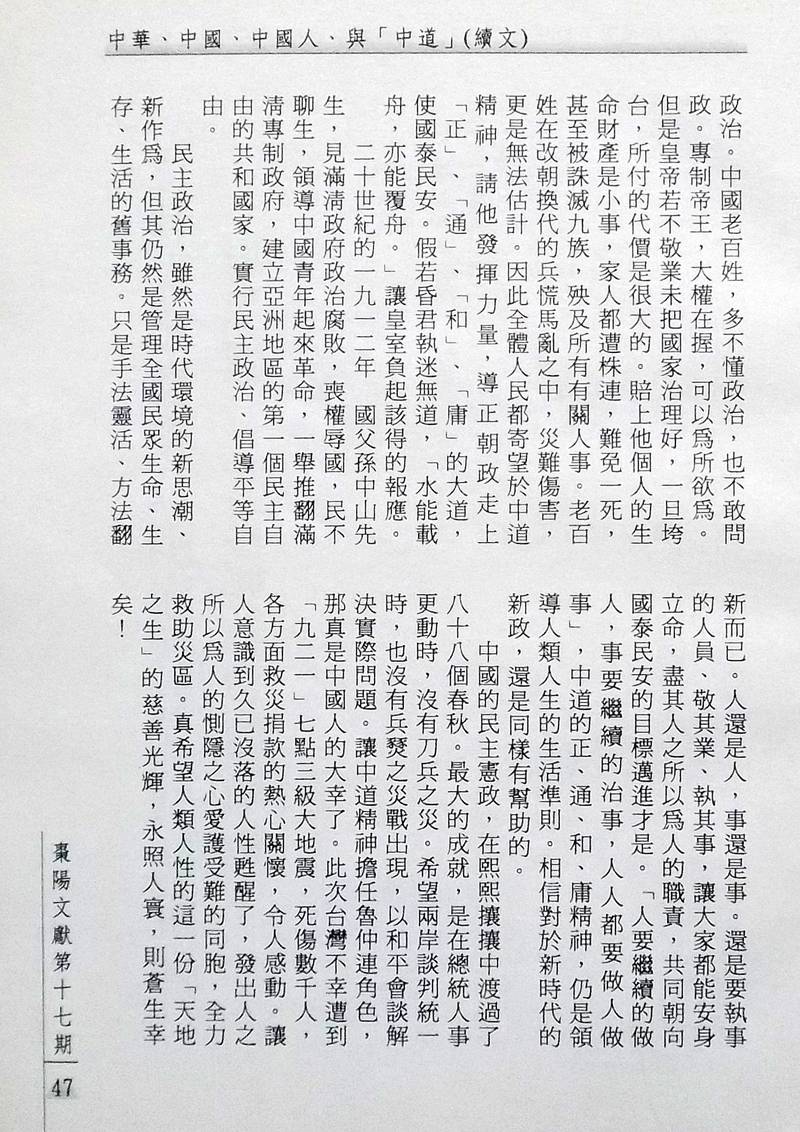 中華、中國、中國人、與「中道」(續文)
政治。中國老百姓，多不懂政治，也不敢問
政。專制帝王，大權在握，可以為所欲為。
但是皇帝若不敬業未把國家治理好，一旦垮
台，所付的代價是很大的。賠上他個人的生
命財產是小事，家人都遭株連，難免一死，
甚至被誅滅九族，殃及所有有關人事。老百
姓在改朝換代的兵慌馬亂之中，災難傷害，
更是無法估計。因此全體人民都寄望於中道
精神，請他發揮力量，導正朝政走上
「正」、「通」、「和」、「庸」的大道，
使國泰民安。假若昏君執迷無道，「水能載
舟，亦能覆舟。」讓皇室負起該得的報應。
二十世紀的一九一二年　國父孫中山先
生，見滿清政府政治腐敗，喪權辱國，民不
聊生，領導中國青年起來革命，一舉推翻滿
清專制政府，建立亞洲地區的第一個民主自
由的共和國家。實行民主政治、倡導平等自
由。
民主政治，雖然是時代環境的新思潮、
新作為，但其仍然是管理全國民眾生命、生
存、生活的舊事務。只是手法靈活、方法翻
新而已。人還是人，事還是事。還是要執事
的人員、敬其業、執其事，讓大家都能安身
立命，盡其人之所以為人的職責，共同朝向
國泰民安的目標邁進才是。「人要繼續的做
人，事要繼續的治事，人人都要做人做
事」，中道的正、通、和、庸精神，仍是領
導人類人生的生活準則。相信對於新時代的
新政，還是同樣有幫助的。
中國的民主憲政，在熙熙攘攘中渡過了
八十八個春秋。最大的成就，是在總統人事
更動時，沒有刀兵之災。希望兩岸談判統一
時，也沒有兵燹之災戰出現，以和平會談解
決實際問題。讓中道精神擔任魯仲連角色，
那真是中國人的大幸了。此次台灣不幸遭到
「九二一」七點三級大地震，死傷數千人，
各方面救災捐款的熱心關懷，令人感動。讓
人意識到久已沒落的人性甦醒了，發出人之
所以為人的惻隱之心愛護受難的同胞，全力
救助災區。真希望人類人性的這一份「天地
之生」的慈善光輝，永照人寰，則蒼生幸
矣！
棗陽文獻第十七期
47